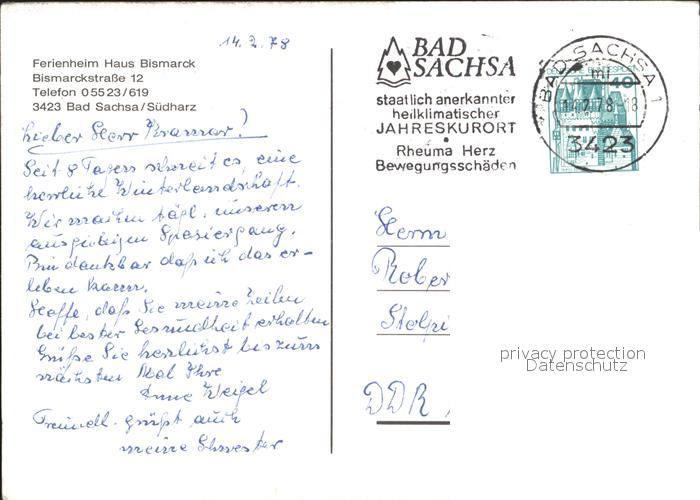 14.2.78
Ferienheim Haus Bismarck
Bismarckstraße 12
Telefon 05523/619
3423 Bad Sachsa/Südharz
Lieber Herr Kramar!
Seit 8 Tagen schneit es, eine
herrliche Winterlandschaft.
Wir machen tägl. unseren
ausgiebigen Spaziergang.
Bin dankbar daß ich das er-
leben kann.
Hoffe, daß Sie meine Zeilen
bei bester Gesundheit erhalten
Grüße Sie herzlichst bis zum
nächsten Mal Ihre
Anne Weigel
Freundl. grüßt auch
meine Schwester
BAD
SACHSA
staatlich anerkannter
heilklimatischer
JAHRESKURORT
Rheuma Herz
Bewegungsschäden
BAD SACHSA 1
ml
14.2.78-18
3423
40
Herrn
Rober
Stolpi
DDR,
privacy protection
Datenschutz